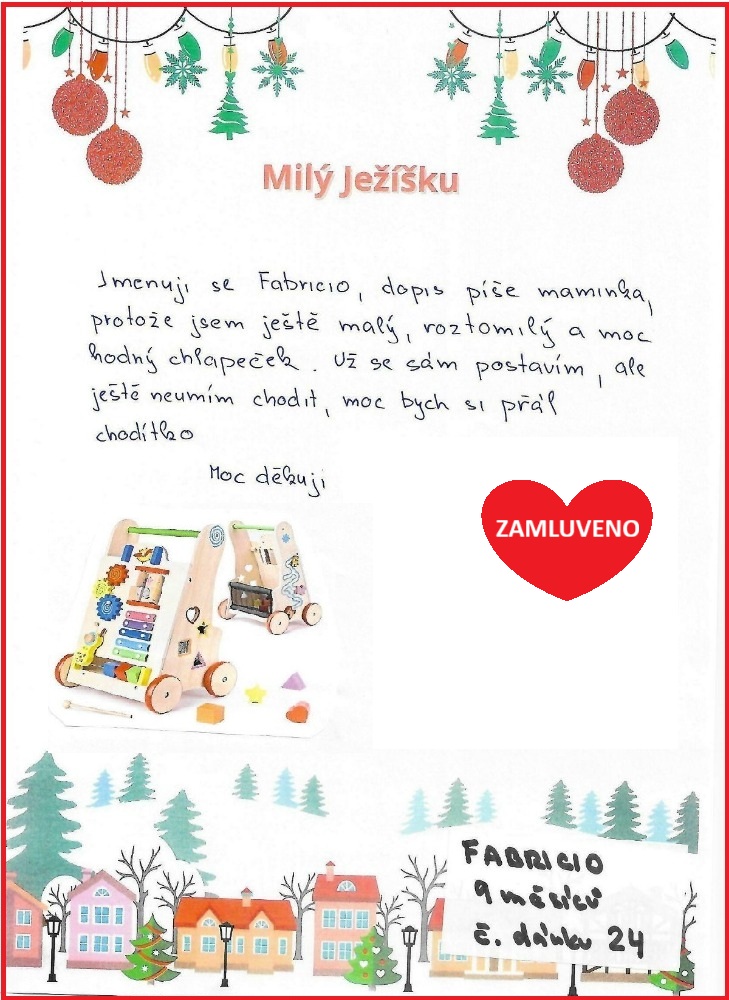 Milý Ježíšku
Jmenuji se Fabricio, dopis píše maminka,
protože jsem ještě malý, roztomilý a moc
hodný chlapeček. Už se sám postavím, ale
ještě neumím chodit, moc bych si přál
chodítko
Moc děkuji
ZAMLUVENO
FABRICIO
9 měsíců
č. dárku 24